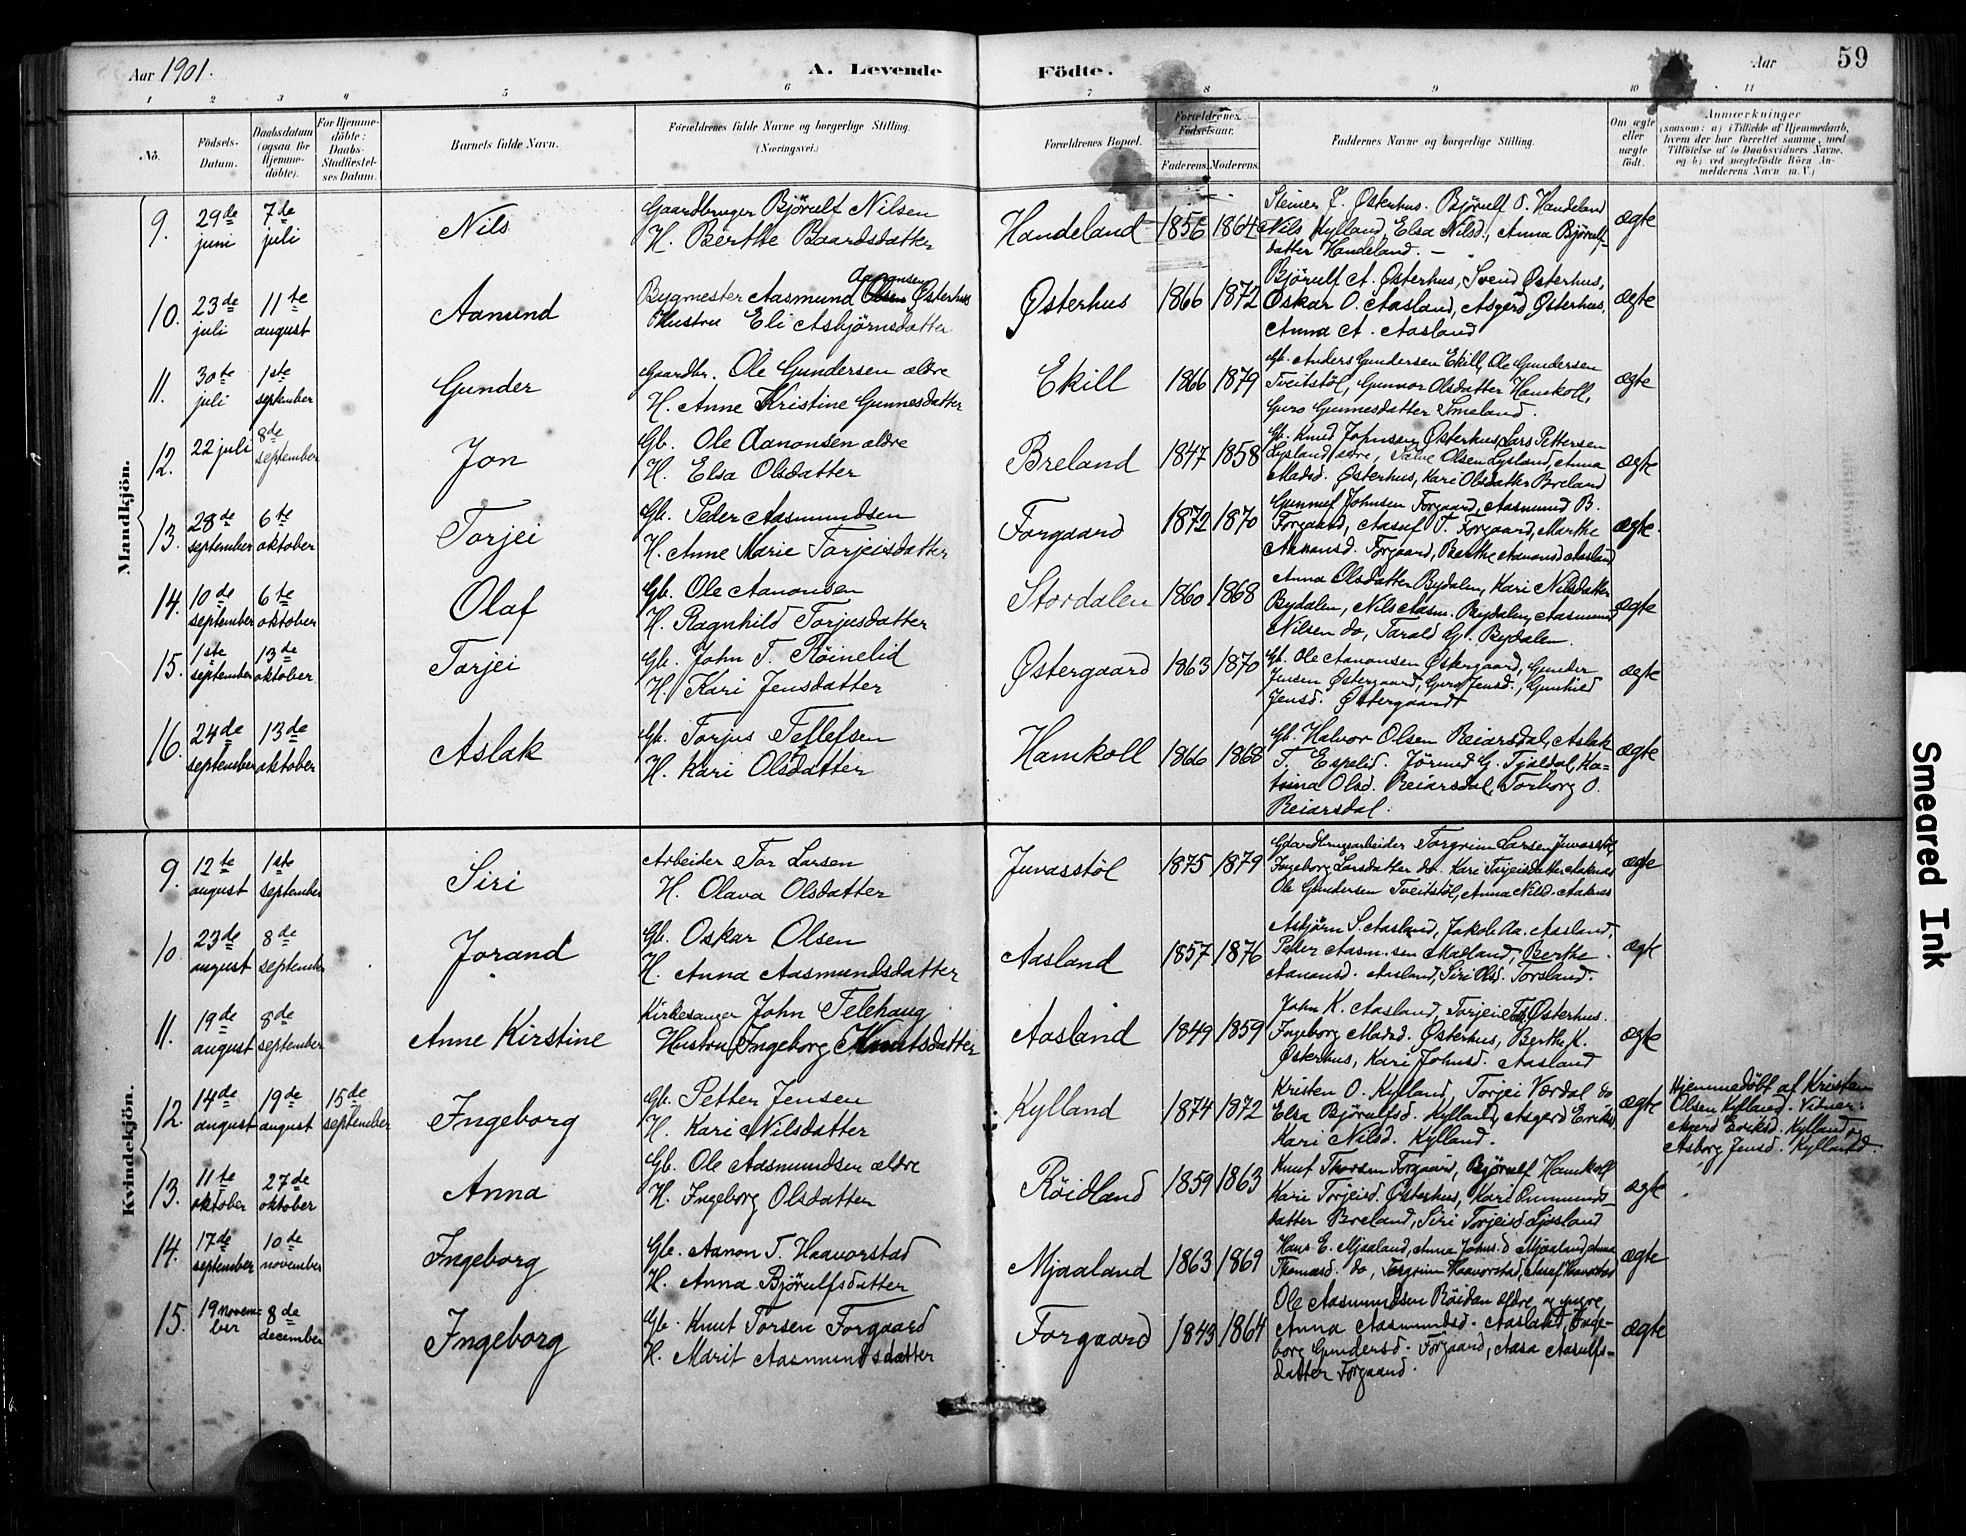 Aar 1901.
A. Levende
Födte.
Aar
59
1 2 3 4 5 6 7 8 9 10 11
No.
Födsels-
Datum.
Daabsdatum
(ogsaa for
Hjemme-
döbte).
For Hjemme-
döbte:
Daabs-
Stadfæstel-
ses Datum.
Barnets fulde Navn.
Forældrenes fulde Navne og borgerlige Stilling.
(Næringsvei.)
Forældrenes Bopæl.
Forældrenes
Födselsaar.
Faderens. Moderens.
Faddernes Navne og borgerlige Stilling.
Om ægte
eller
uægte
født.
Anmærkninger
(saasom: a) i Tilfælde af Hjemmedaab,
hvem der har forrettet samme, med
Tilföielse af to Daabsvidners Navne,
og b) ved uægtefödte Börn An-
melderens Navn m. V.)
Mandkjön.
9. 29de juni 7de juli Nils
Gaardbruger Bjørulf Nilsen
H. Berthe Baardsdatter
Handeland 1856 1864
Steiner J. Østerhus. Bjørulf O. Handeland
Nils Kylland, Elsa Nilsd., Anna Bjørulfs-
datter Handeland. –
ægte
10. 23de juli 11te august Aamund
Bygmester Aasmund Olsen Aanonsen Østerhus
Hustru Eli Asbjørnsdatter
Østerhus 1866 1872
Bjørulf A. Østerhus, Svend Østerhus,
Oskar O. Aasland, Asgerd Østerhus,
Anna A. Aasland
ægte
11. 30te juli 1ste september Gunder
Gaardbr. Ole Gundersen ældre
H. Anne Kristine Gunnesdatter
Ekill 1866 1879
Gb. Anders Gundersen Ekill, Ole Gundersen
Tveitstöl, Gunnor Olsdatter Hamkoll,
Guro Gunnesdatter Smeland.
ægte
12. 22 juli 8de september Jon
Gb. Ole Aanonsen ældre
H. Elsa Olsdatter
Breland 1847 1858
Gb. Knud Johnsen Østerhus, Lars Pettersen
Lysland, Olsen Lysland, Anna
Madsd. Østerhus, Kari Olsdatter Breland
ægte
13. 28de september 6te oktober Torjei
Gb. Peder Aasmundsen
H. Anne Marie Torjeisdatter
Forgaard 1872 1870
Gunnuf Johnsen Forgaard, Aasmund B.
Forgaard, Aasuf T. Forgaard, Marthe
Aanonsd. Forgaard, Berthe Aanonsd Aasland
ægte.
14. 10de september 6te oktober Olaf
Gb. Ole Aanonsen
H. Ragnhild Torjusdatter
Stordalen 1860 1868
Anna Olsdatter Bydalen, Kari Nilsdatter
Bydalen, Nils Aasm. Bydalen, Aasmund
Nilsen do, Tarald G. Bydalen.
ægte
15. 1ste september 13de oktober Torjei
Gb. John T. Röinelid
H. Kari Jensdatter
Østergaard 1863 1870
Gb. Ole Aanonsen Østergaard, Gunder
Jensen Østergaard, Guro Jensd., Gunhild
Jensd. Østergaard
ægte
16. 24de september 13de oktober Aslak
Gb. Torjus Tellefsen
H. Kari Olsdatter
Hamkoll 1866 1868
Gb. Halvor Olsen Reiarsdal, Aslak
T. Espelid. Jörund G. Tjaldal, Ka-
trina Olsd. Reiarsdal, Torborg O.
Reiarsdal.
ægte
Kvindekjön.
9. 12te august 1ste september Siri
Arbeider Tor Larsen
H. Olava Olsdatter
Juvasstöl 1875 1879
Torgrim Larsen Juvasstöl,
Ingeborg Larsdatter do. Kari Torjeisdatter Aaknes
Ole Gundersen Tveitstöl, Anna Nilsd. Aaknes
ægte
10. 23de august 8de september Jorand
Gb. Oskar Olsen
H. Anna Aasmundsdatter
Aasland 1857 1876
Asbjörn S. Aasland, Jakob Aa. Aasland,
Peder Aasm.sen Aasland, Berthe
Aanonsd. Aasland, Siri Olsd. Torsland.
ægte
11. 19de august 8de september Anne Kirstine
Kirkesanger John Telehaug
Hustru Ingeborg Knutsdatter
Aasland 1849 1859
John K. Aasland, Torjei Østerhus.
Ingeborg Madsd. Østerhus, Berthe K.
Østerhus, Kari Johnsd. Aasland
ægte
12. 14de august 19de august 15de september Ingeborg
Gb. Petter Jensen
H. Kari Nilsdatter
Kylland 1874 1872
Kristen O. Kylland, Torjei Værdal do
Elsa Bjørulfsd. Kylland, Asgerd Eriksd.
Kari Nilsd. Kylland.
ægte
Hjemmedöbt af Kristen
Olsen Kylland. Vidner:
Asgerd Eriksd. Kylland og
Asborg Jensd. Kylland.
13. 11te oktober 27de oktober Anna
Gb. Ole Aasmundsen ældre
H. Ingeborg Olsdatter
Röidland 1859 1863
Knut Thorsen Forgaard, Bjørulf Hamkoll,
Kari Torjeisd. Østerhus, Kari Ommunds-
datter Breland, Siri Torjeisd Ljosland
ægte
14. 17de september 10de november Ingeborg
Gb. Aanon T. Haavorstad
H. Anna Bjørulfsdatter
Mjaaland 1863 1869
Hans E. Mjaaland, Anna Johnsd Mjaaland, Anna
Thomasd. do, Torgrim Haavorstad, Haavorstad
ægte
15. 19 novem- ber 8de december Ingeborg
Gb. Knut Torsen Forgaard
H. Marit Aasmundsdatter
Forgaard 1843 1864
Ole Aasmundsen Röidan ældre og yngre,
Anna Aasmundsd. Aasland, Inge-
borg Gundersd. Forgaard, Aasa Aasulfs-
datter Forgaard.
ægte
Smeared Ink